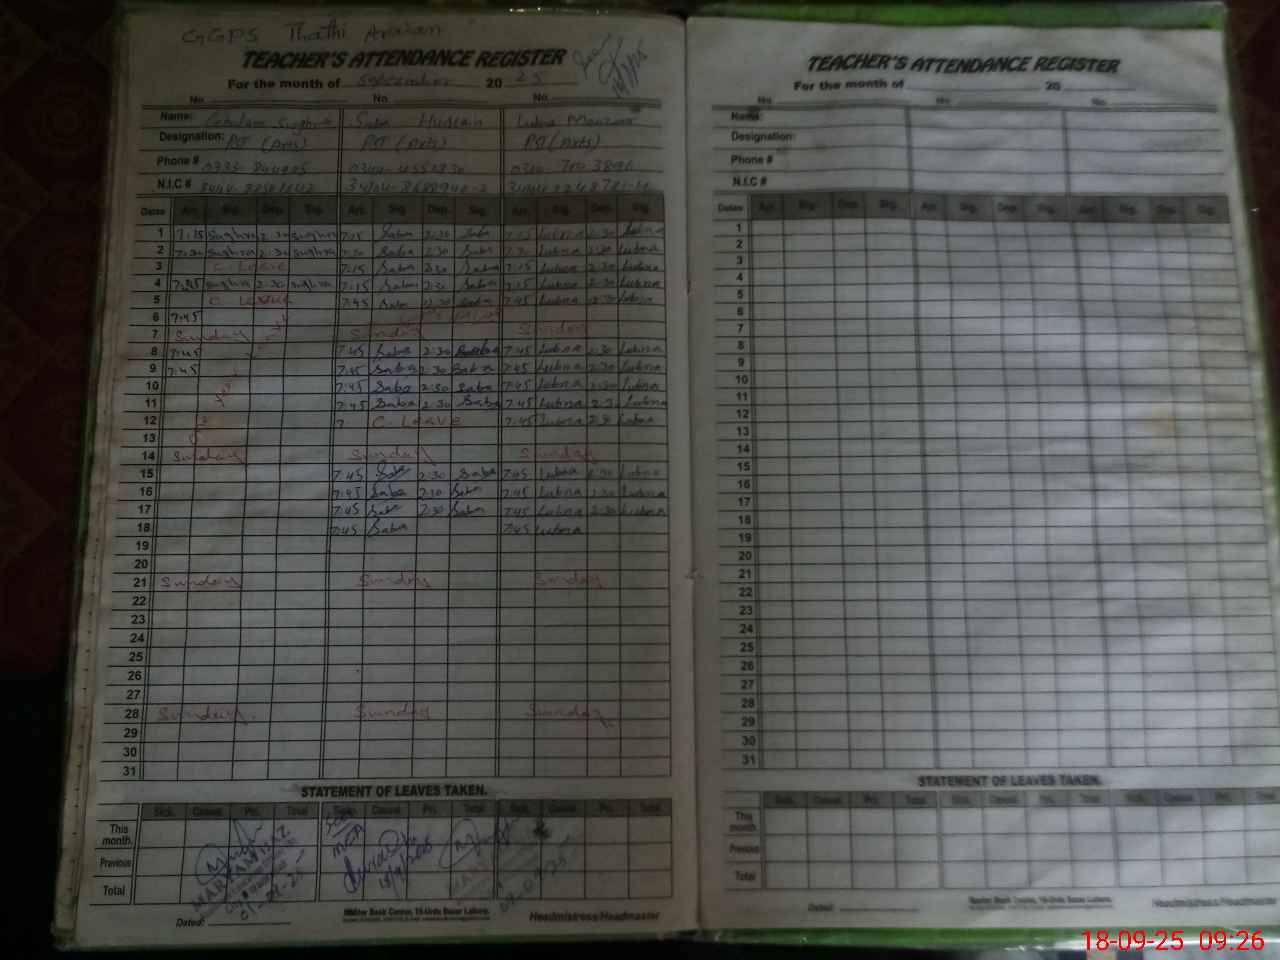 GGPS Thathi Araian
TEACHER'S ATTENDANCE REGISTER
For the month of September 20 25
No. No. No.
Name: Sughra Saba Hussain Lubna
Designation: PST (Arts) PST (Arts) PST (Arts)
Phone #
N.I.C #
Dates Arr. Sig. Dep. Sig. Arr. Sig. Dep. Sig. Arr. Sig. Dep. Sig.
1 7:15 Sughra 2:30 Sughra 7:15 Saba 2:30 Saba 7:15 Lubna 2:30 Lubna
2 7:30 Sughra 2:30 Sughra 7:30 Saba 2:30 Saba 7:30 Lubna 2:30 Lubna
3 C. Leave 7:15 Saba 2:30 Saba 7:15 Lubna 2:30 Lubna
4 7:45 Sughra 2:30 Sughra 7:15 Saba 2:30 Saba 7:15 Lubna 2:30 Lubna
5 C. Leave 7:45 Saba 12:30 Saba 7:45 Lubna 12:30 Lubna
6 7:45
7 Sunday Sunday Sunday
8 7:45 7:45 Saba 2:30 Saba 7:45 Lubna 2:30 Lubna
9 7:45 7:45 Saba 2:30 Saba 7:45 Lubna 2:30 Lubna
10 7:45 Saba 2:30 Saba 7:45 Lubna 2:30 Lubna
11 7:45 Saba 2:30 Saba 7:45 Lubna 2:30 Lubna
12 7 C. Leave 7:45 Lubna 2:30 Lubna
13
14 Sunday Sunday Sunday
15 7:45 Saba 2:30 Saba 7:45 Lubna 2:30 Lubna
16 7:45 Saba 2:30 Saba 7:45 Lubna 2:30 Lubna
17 7:45 Saba 2:30 Saba 7:45 Lubna 2:30 Lubna
18 7:45 Saba 7:45 Lubna
19
20
21 Sunday Sunday Sunday
22
23
24
25
26
27
28 Sunday Sunday Sunday
29
30
31
STATEMENT OF LEAVES TAKEN.
Sick. Casual Pri. Total Sick. Casual Pri. Total Sick. Casual Pri. Total
This month.
Previous
Total
MCA
18/9/2025
01-09-25
Dated:
Master Book Center, 15-Urdu Bazar Lahore.
Headmistress/Headmaster
TEACHER'S ATTENDANCE REGISTER
For the month of 20
No. No. No.
Name:
Designation:
Phone #
N.I.C #
Dates Arr. Sig. Dep. Sig. Arr. Sig. Dep. Sig. Arr. Sig. Dep. Sig.
1
2
3
4
5
6
7
8
9
10
11
12
13
14
15
16
17
18
19
20
21
22
23
24
25
26
27
28
29
30
31
STATEMENT OF LEAVES TAKEN.
Sick. Casual Pri. Total Sick. Casual Pri. Total Sick. Casual Pri. Total
This month.
Previous
Total
Dated:
Master Book Center, 15-Urdu Bazar Lahore.
Headmistress/Headmaster
18-09-25 09:26